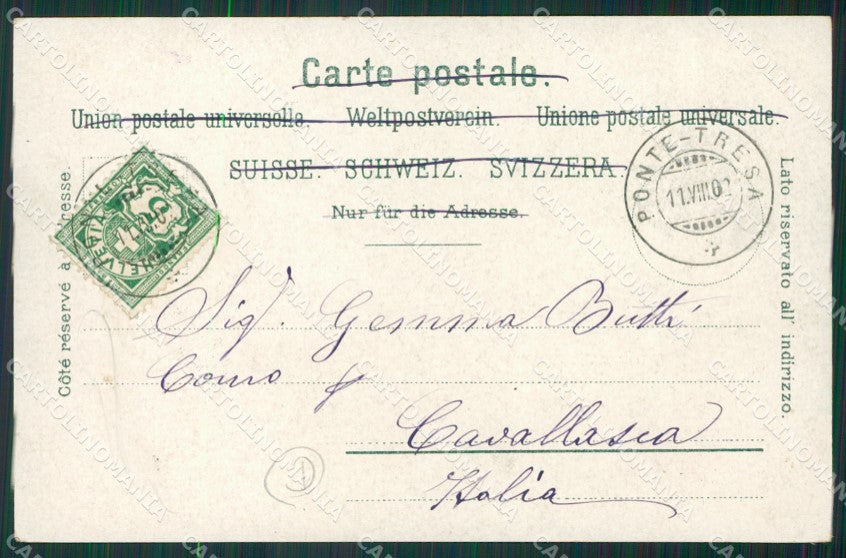 Carte postale.
Union postale universelle. Weltpostverein. Unione postale universale.
SUISSE. SCHWEIZ. SVIZZERA.
Nur für die Adresse.
Côté réservé à l'adresse.
Lato riservato all' indirizzo.
PONTE-TRESA
11.VIII.02
HELVETIA
5
Sig. Gemma Butti
Como p
Cavallasca
Italia
1
CARTOLINOMANIA